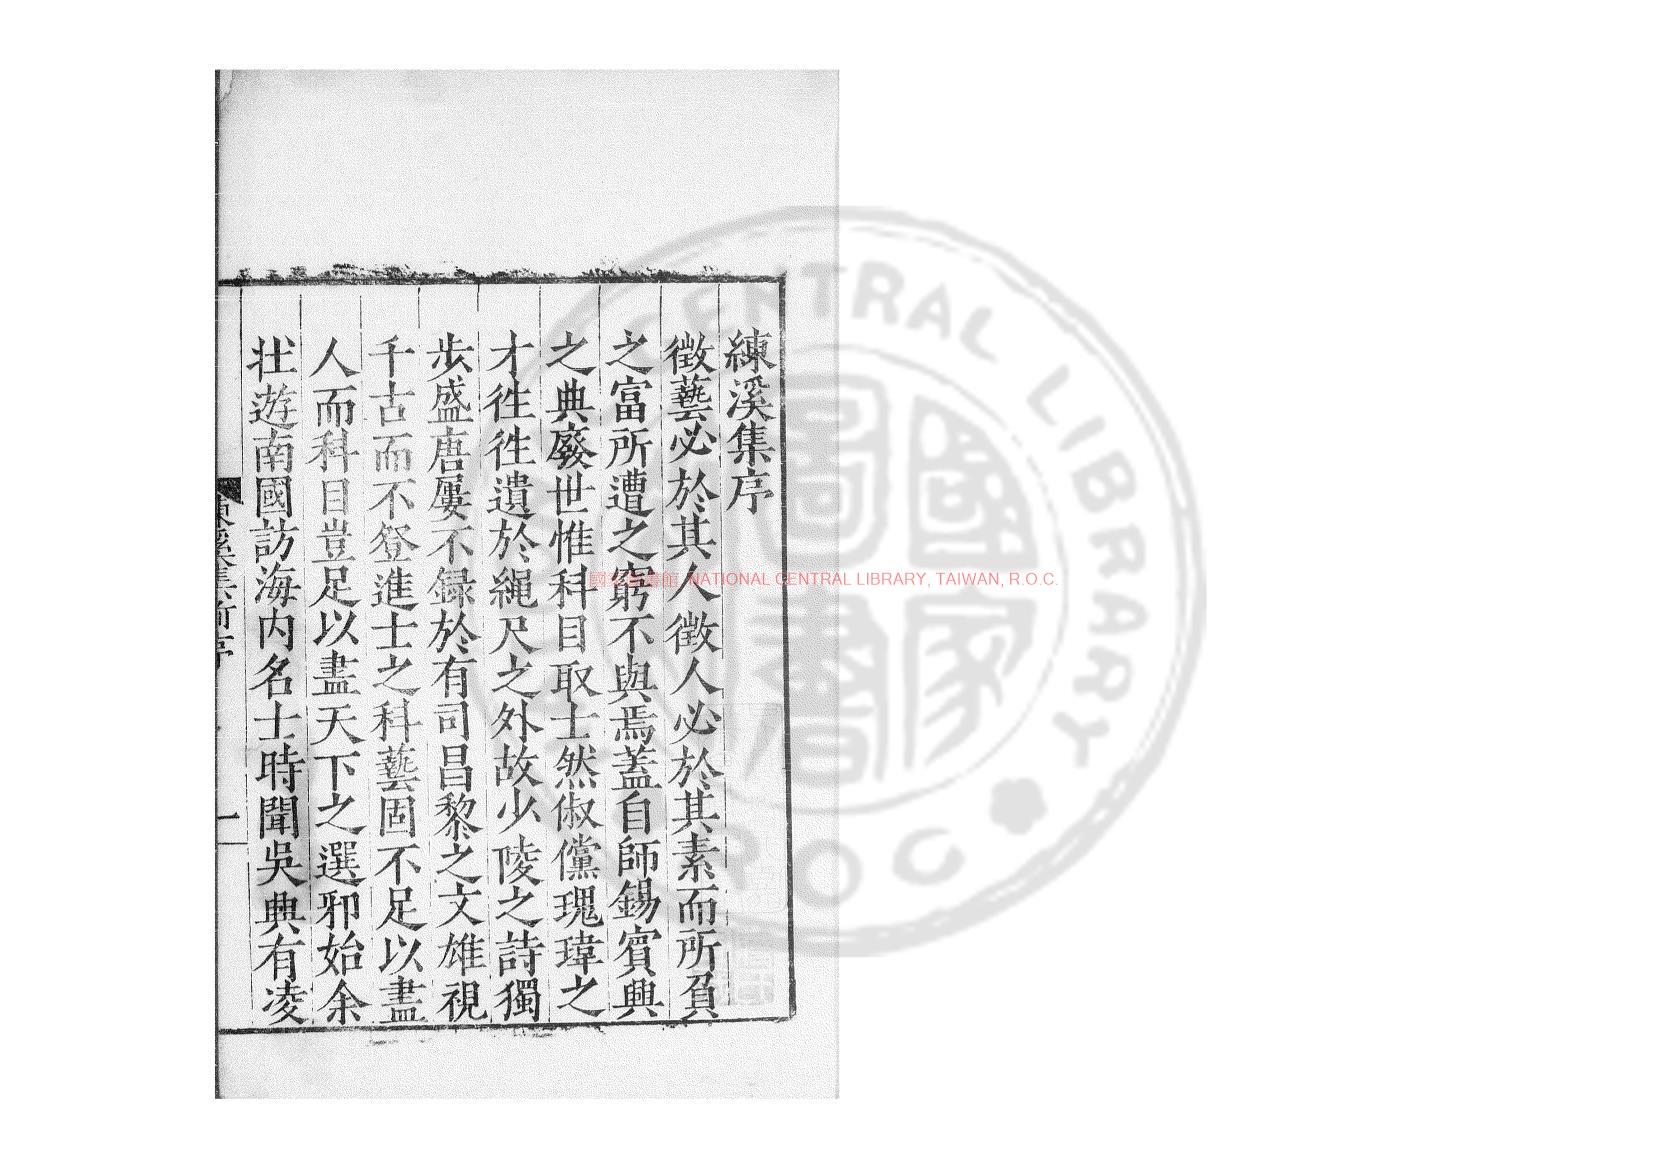 練溪集序
徵藝必於其人徵人必於其素而所負
之富所遭之窮不與焉蓋自師錫賓興
之典廢世惟科目取士然俶儻瑰瑋之
才徃徃遺於繩尺之外故少陵之詩獨
步盛唐屢不録於有司昌黎之文雄視
千古而不登進士之科藝固不足以盡
人而科目豈足以盡天下之選邪始余
壮遊南國訪海内名士時聞吳興有凌
練溪集前序
一
國家圖書館 NATIONAL CENTRAL LIBRARY, TAIWAN, R.O.C.
CENTRAL LIBRARY
ROC
國家圖書館